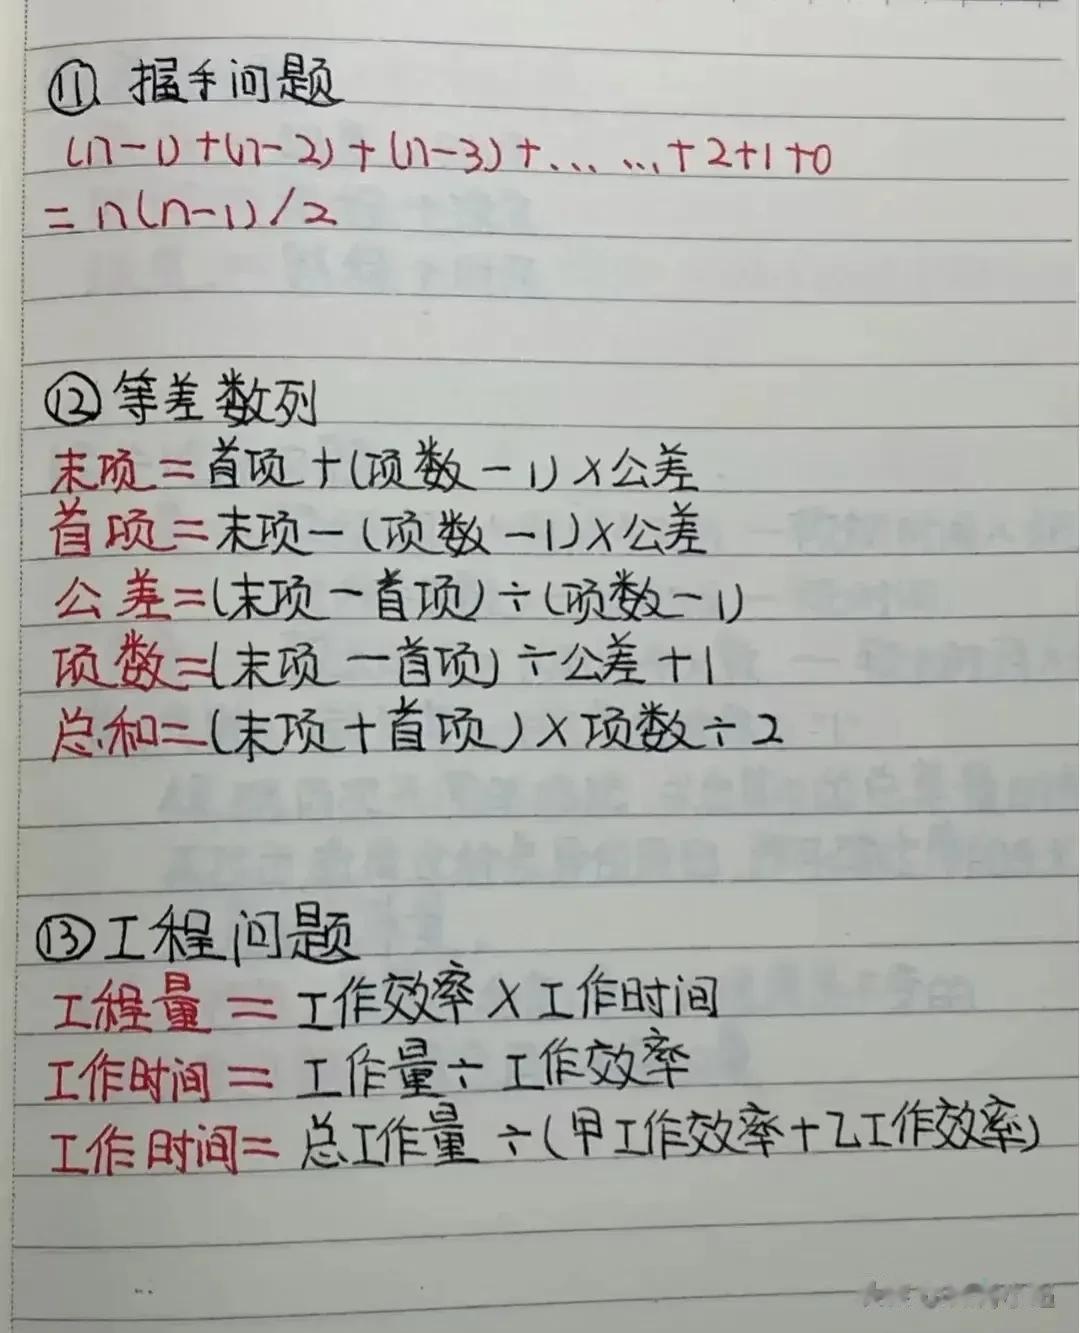 ⑪、握手问题
(n-1)+(n-2)+(n-3)+... ...+2+1+0
=n(n-1)/2
⑫等差数列
末项=首项+(项数-1)×公差
首项=末项-(项数-1)×公差
公差=(末项-首项)÷(项数-1)
项数=(末项-首项)÷公差+1
总和=(末项+首项)×项数÷2
⑬工程问题
工程量=工作效率×工作时间
工作时间=工作量÷工作效率
工作时间=总工作量÷(甲工作效率+乙工作效率)